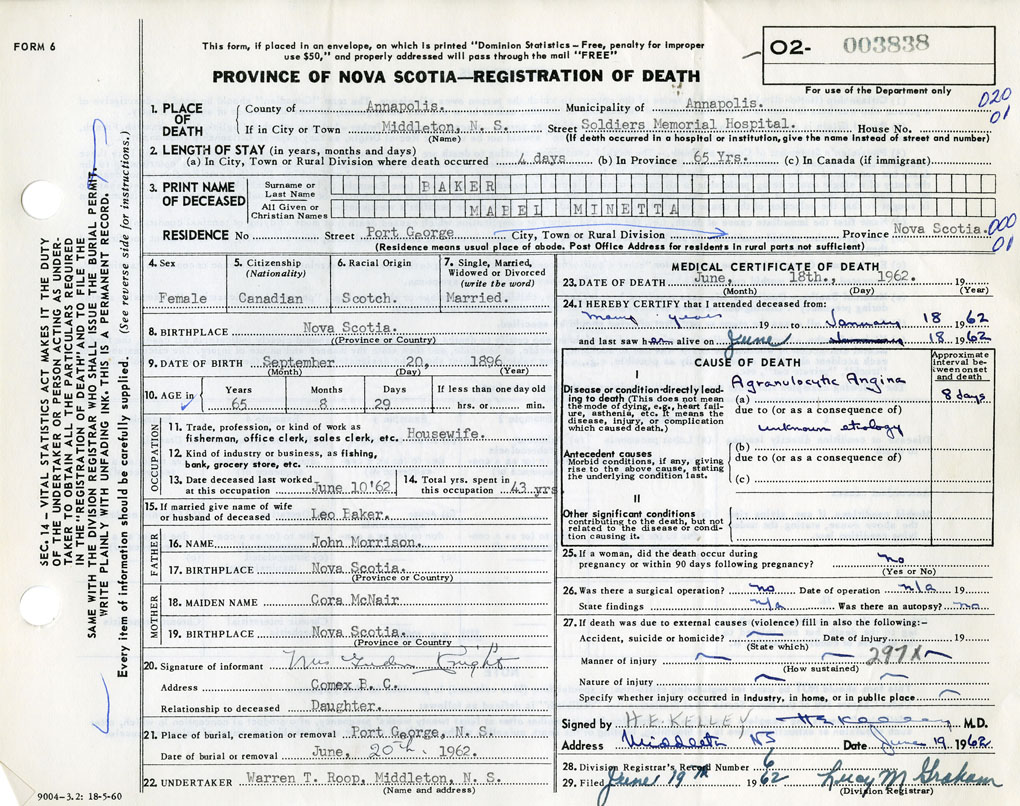 FORM 6
This form, if placed in an envelope, on which is printed "Dominion Statistics – Free, penalty for improper
use $50," and properly addressed will pass through the mail "FREE"
PROVINCE OF NOVA SCOTIA—REGISTRATION OF DEATH
O2- 003838
For use of the Department only
020
01
1. PLACE OF DEATH
County of Annapolis. Municipality of Annapolis.
If in City or Town Middleton, N. S. Street Soldiers Memorial Hospital. House No.
(Name) (If death occurred in a hospital or institution, give the name instead of street and number)
2. LENGTH OF STAY (in years, months and days)
(a) In City, Town or Rural Division where death occurred 4 days (b) In Province 65 Yrs. (c) In Canada (if immigrant)
3. PRINT NAME OF DECEASED
Surname or Last Name BAKER
All Given or Christian Names MABEL MINETTA
RESIDENCE No Street Port George City, Town or Rural Division Province Nova Scotia.
000
01
(Residence means usual place of abode. Post Office Address for residents in rural parts not sufficient)
4. Sex
Female
5. Citizenship
(Nationality)
Canadian
6. Racial Origin
Scotch.
7. Single, Married,
Widowed or Divorced
(write the word)
Married.
8. BIRTHPLACE Nova Scotia.
((Province or Country)
9. DATE OF BIRTH September 20, 1896
(Month) (Day) (Year)
10. AGE in
Years Months Days If less than one day old
65 8 29 hrs. or min.
OCCUPATION
11. Trade, profession, or kind of work as
fisherman, office clerk, sales clerk, etc. Housewife.
12. Kind of industry or business, as fishing,
bank, grocery store, etc.
13. Date deceased last worked
at this occupation June 10'62
14. Total yrs. spent in
this occupation 43 yrs
15. If married give name of wife
or husband of deceased Leo Baker.
FATHER
16. NAME John Morrison.
17. BIRTHPLACE Nova Scotia.
(Province or Country)
MOTHER
18. MAIDEN NAME Cora McNair
19. BIRTHPLACE Nova Scotia.
(Province or Country
20. Signature of informant Mrs Knight
Address Comex B. C.
Relationship to deceased Daughter.
21. Place of burial, cremation or removal Port George, N. S.
Date of burial or removal June, 20th. 1962.
22. UNDERTAKER Warren T. Roop, Middleton, N. S.
(Name and address)
9004-3.2: 18-5-60
MEDICAL CERTIFICATE OF DEATH
23. DATE OF DEATH June, 18th., 1962.
(Month) (Day) (Year)
24. I HEREBY CERTIFY that I attended deceased from:
many years 19 to January 18 1962
and last saw her alive on June January 18 1962
CAUSE OF DEATH
Approximate
interval be-
tween onset
and death
I
Disease or condition directly lead-
ing to death (This does not mean
the mode of dying, e.g., heart fail-
ure, asthenia, etc. It means the
disease, injury, or complication
which caused death.)
(a) Agranulocytic Angina 8 days
due to (or as a consequence of)
unknown etiology
Antecedent causes
Morbid conditions, if any, giving
rise to the above cause, stating
the underlying condition last.
(b)
due to (or as a consequence of)
(c)
II
Other significant conditions
contributing to the death, but not
related to the disease or condi-
tion causing it.
25. If a woman, did the death occur during
pregnancy or within 90 days following pregnancy? no
(Yes or No)
26. Was there a surgical operation? no Date of operation n/a 19
State findings n/a Was there an autopsy? no
27. If death was due to external causes (violence) fill in also the following:-
Accident, suicide or homicide? Date of injury 19
(State which)
Manner of injury 297X
(How sustained)
Nature of injury
Specify whether injury occurred in industry, in home, or in public place
Signed by H.E. KELLEY M.D.
Address Middleton NS Date June 19 1962
28. Division Registrar's Record Number 6
29. Filed June 19th 1962 Lucy M Graham
(Division Registrar)
SEC. 14 – VITAL STATISTICS ACT MAKES IT THE DUTY
OF THE UNDERTAKER OR PERSON ACTING AS UNDER-
TAKER TO OBTAIN ALL THE PARTICULARS REQUIRED
IN THE "REGISTRATION OF DEATH" AND TO FILE THE
SAME WITH THE DIVISION REGISTRAR WHO SHALL ISSUE THE BURIAL PERMIT.
WRITE PLAINLY WITH UNFADING INK. THIS IS A PERMANENT RECORD.
Every item of information should be carefully supplied. (See reverse side for instructions.)